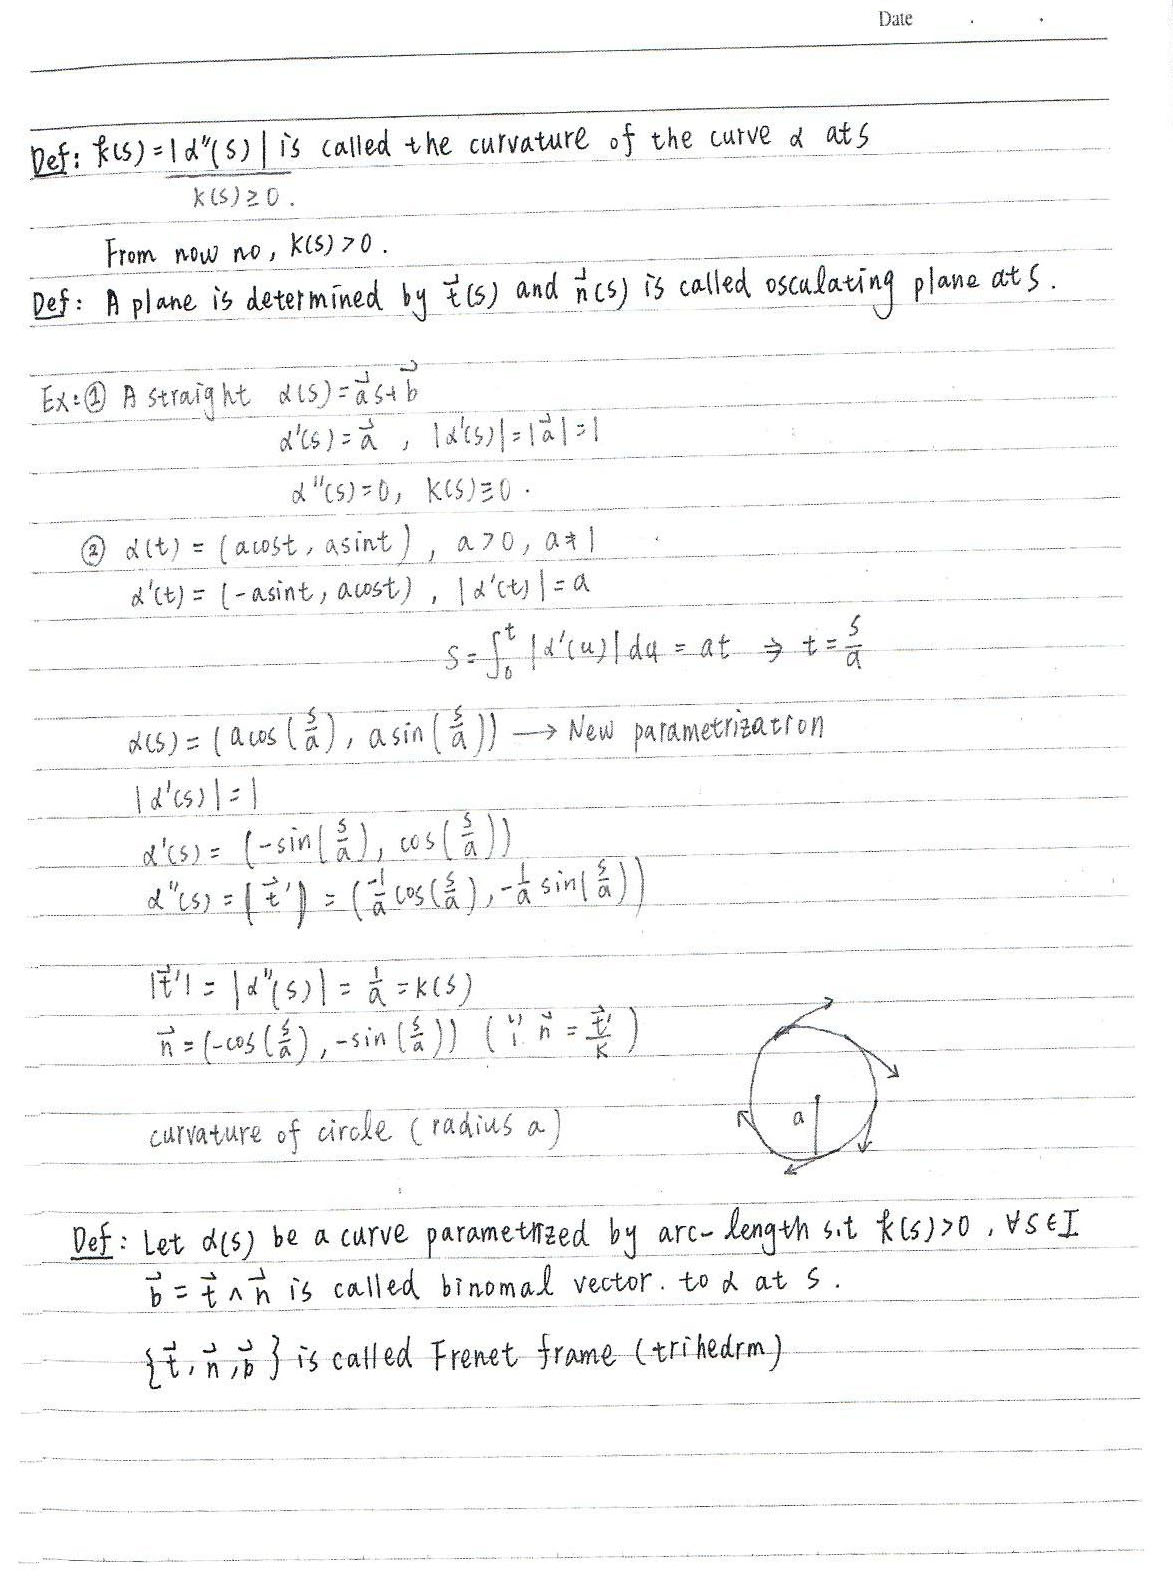 Date . .
Def: k(s)=|α''(s)| is called the curvature of the curve α at s
k(s)≥0.
From now no, k(s)>0.
Def: A plane is determined by t⃗(s) and n⃗(s) is called osculating plane at s.
Ex:① A straight α(s)=a⃗s+b⃗
α'(s)=a⃗, |α'(s)|=|a⃗|=1
α''(s)=0, k(s)≡0.
② α(t) = (acost, asint), a>0, a≠1
α'(t) = (-asint, acost), |α'(t)|=a
s=∫₀ᵗ |α'(u)|du = at ⇒ t=s/a
α(s) = (acos(s/a), asin(s/a)) → New parametrization
|α'(s)|=1
α'(s) = (-sin(s/a), cos(s/a))
α''(s) = (t⃗') = (-1/a cos(s/a), -1/a sin(s/a))
|t⃗'| = |α''(s)| = 1/a = k(s)
n⃗ = (-cos(s/a), -sin(s/a)) (∵ n⃗ = t⃗'/k)
a
curvature of circle (radius a)
Def: Let α(s) be a curve parametrized by arc-length s.t k(s)>0, ∀s∈I
b⃗ = t⃗ ∧ n⃗ is called binomal vector. to α at s.
{t⃗, n⃗, b⃗} is called Frenet frame (trihedrm)